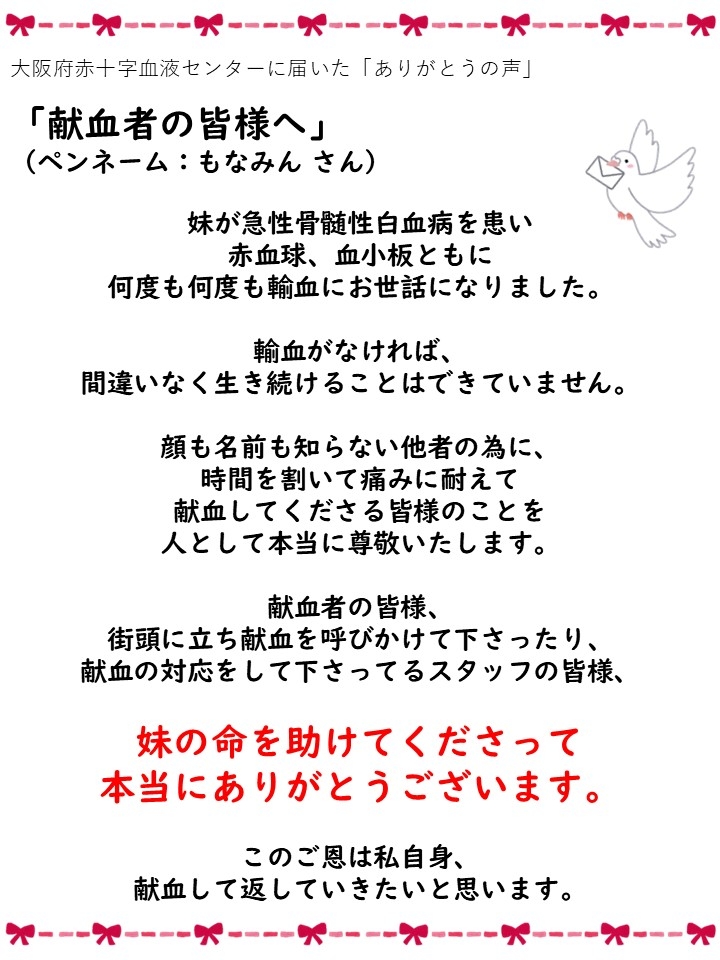 大阪府赤十字血液センターに届いた「ありがとうの声」
「献血者の皆様へ」
（ペンネーム：もなみん さん）
妹が急性骨髄性白血病を患い
赤血球、血小板ともに
何度も何度も輸血にお世話になりました。
輸血がなければ、
間違いなく生き続けることはできていません。
顔も名前も知らない他者の為に、
時間を割いて痛みに耐えて
献血してくださる皆様のことを
人として本当に尊敬いたします。
献血者の皆様、
街頭に立ち献血を呼びかけて下さったり、
献血の対応をして下さってるスタッフの皆様、
妹の命を助けてくださって
本当にありがとうございます。
このご恩は私自身、
献血して返していきたいと思います。